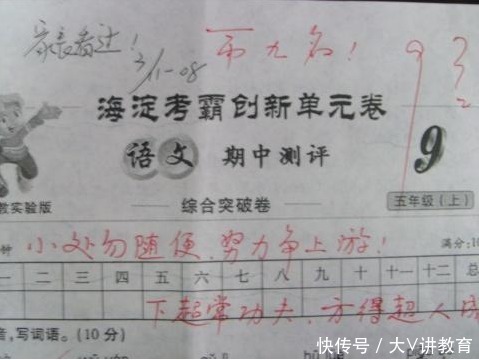 家长看过！
3/11-08
第九名！
93
海淀考霸创新单元卷
语文 期中测评
9
教实验版
综合突破卷
五年级（上）
钟 小处勿随便，努力争上游！ 满分：10
一 二 三 四 五 六 七 八 九 十 十一 十二 总
下超常功夫，方得超人成
音，写词语。（10分）
快传号／大V讲教育